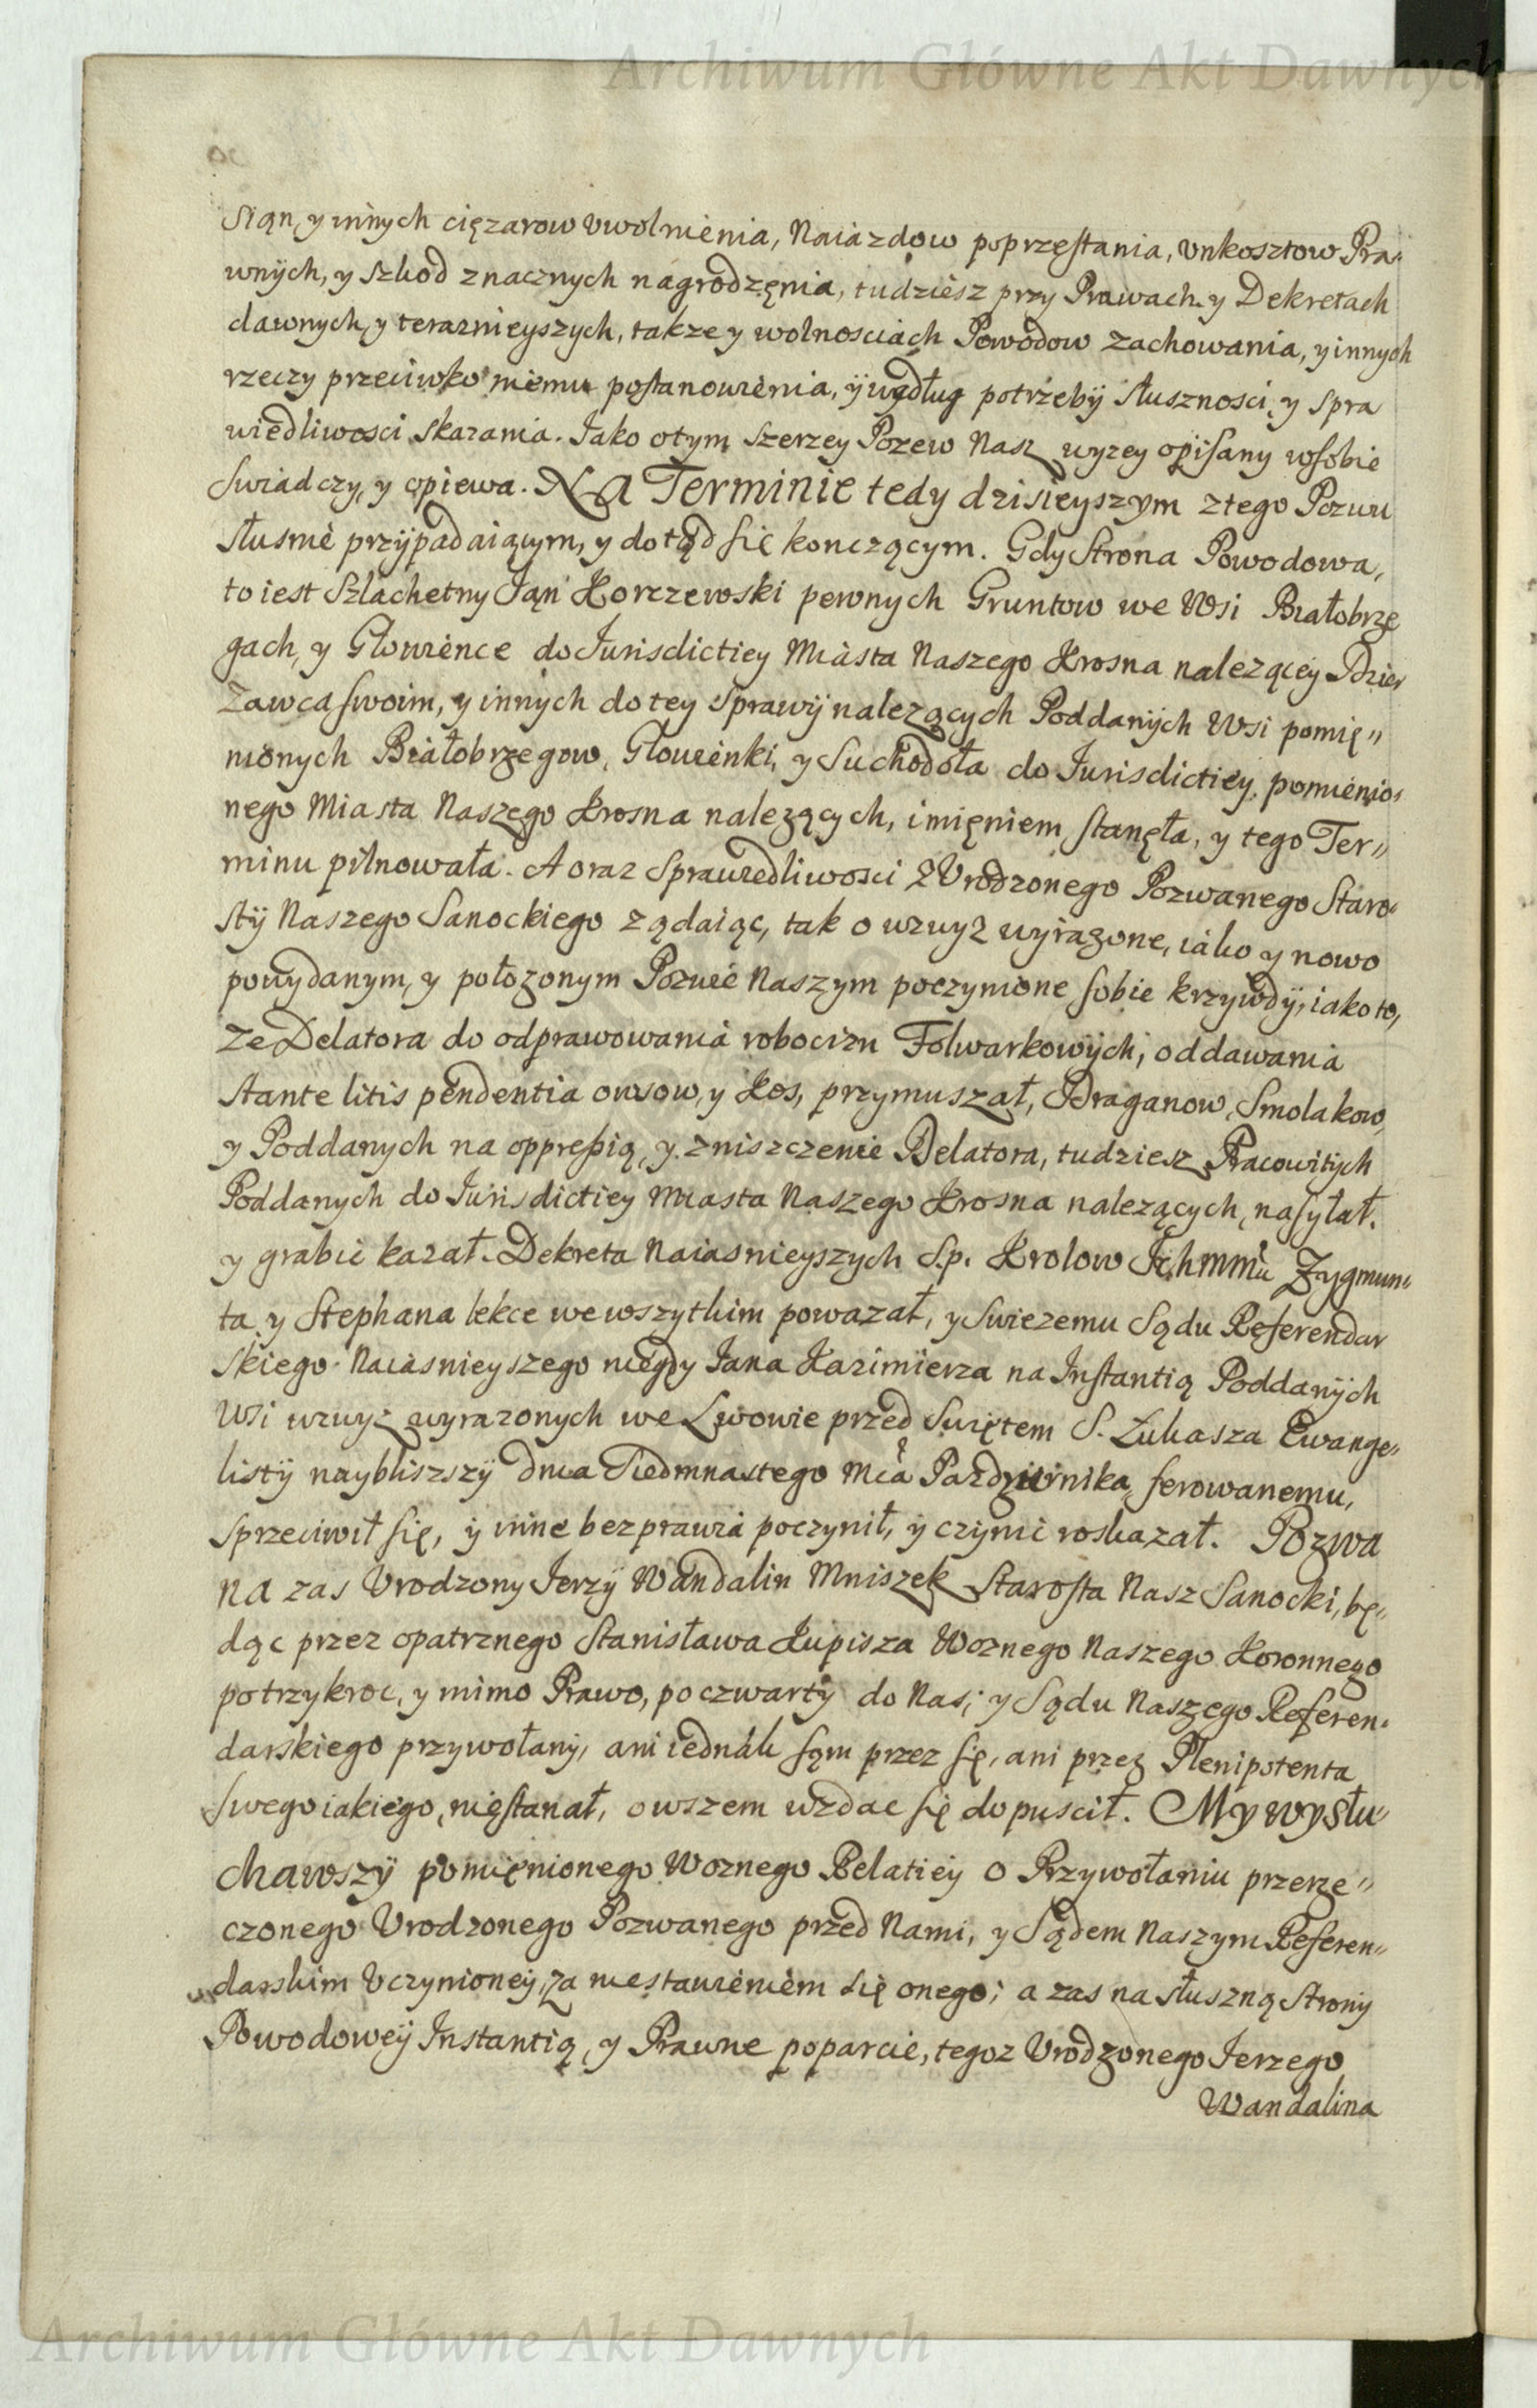 Archiwum Główne Akt Dawnych
siąn, y innych cięzarow uwolnienia, Naiazdow poprzestania, Unkosztow Pra-
wnÿch, y szkod znacznych nagrodzęnia, tudziesz przy Prawach y Dekretach
dawnych y teraznieyszych, takze y wolnosciach Powodow zachowania, y innych
rzeczy przeciwko niemu postanowienia, ÿ wędług potrzebÿ słusznosci, y spra
wiedliwosci skazania. Jako o tym szerzey Pozew Nasz wyzey opisany w sobie
swiadczy, y opiewa. NA Terminie tedy dzisieyszym z tego Pozwu
słusnie przÿpadaiącym, y dotąd się konczącym. Gdy Strona Powodowa,
to iest Szlachetny Jąn Korczewski pewnych Gruntow we Wsi Białobrze
gach, y Głowience do Jurisdictiey Miasta Naszego Krosna nalezącey Dzier
zawca swoim, y innych do tey sprawÿ nalezących Poddanÿch Wsi pomię„
nionych Białobrzegow, Głowienki, y Suchodoła do Jurisdictiey pomienio-
nego Miasta Naszego Krosna nalezących, imięniem stanęła, y tego Ter„
minu pilnowała. A oraz sprawiedliwosci z Urodzonego Pozwanego Staro-
stÿ Naszego Sanockiego ządaiąc, tak o wzwyz wyrazone, iako y nowo
powydanym, y połozonym Pozwie Naszym poczynione sobie krzywdÿ, iako to,
ze Delatora do odprawowania robocizn Folwarkowÿch, oddawania
stante litis pendentia owsow, y Kos, przymuszał, Draganow, Smolakow,
y Poddanych na oppressią, y zniszczenie Delatora, tudziesz Pracowitÿch
Poddanych do Jurisdictiey Miasta Naszego Krosna nalezących, nasyłał,
y grabic kazał. Dekreta Naiasnieyszych S.p. Krolow Ichmmu Zygmun-
ta, y Stephana lekce we wszytkim powazał, y swiezemu Sądu Referendar
skiego Naiasnieyszego niegdy Jana Kazimierza na Instantią Poddanÿch
Wsi wzwyz wyrazonych we Lwowie przed Swiętem S. Łukasza Ewange-
listÿ naybliszszÿ dnia Siedmnastego Mca Pazdziernika ferowanemu,
sprzeciwił się, ÿ inne bezprawia poczynił, ÿ czynic roskazał. Pozwa
na zas Urodzony Jerzÿ Wandalin Mniszek Starosta Nasz Sanocki, bę-
dąc przez opatrznego Stanisława Kupisza Woznego Naszego Koronnego
potrzykroc, y mimo Prawo, po czwartÿ do Nas, y Sądu Naszego Referen-
darskiego przywołanÿ, ani iednak sąm przez się, ani przez Plenipotenta
swego iakiego, niestanał, owszem wzdac się dopuscił. My wysłu-
chawszÿ pomięnionego Woznego Relatiey o Przywołaniu przerze„
czonego Urodzonego Pozwanego przed Nami, y Sądem Naszym Referen„
darskim Uczynioneÿ, za niestawieniem się onego; a zas na słuszną Stronÿ
Powodoweÿ Instantią, y Prawne poparcie, tegoz Urodzonego Jerzego
Wandalina
Archiwum Główne Akt Dawnych